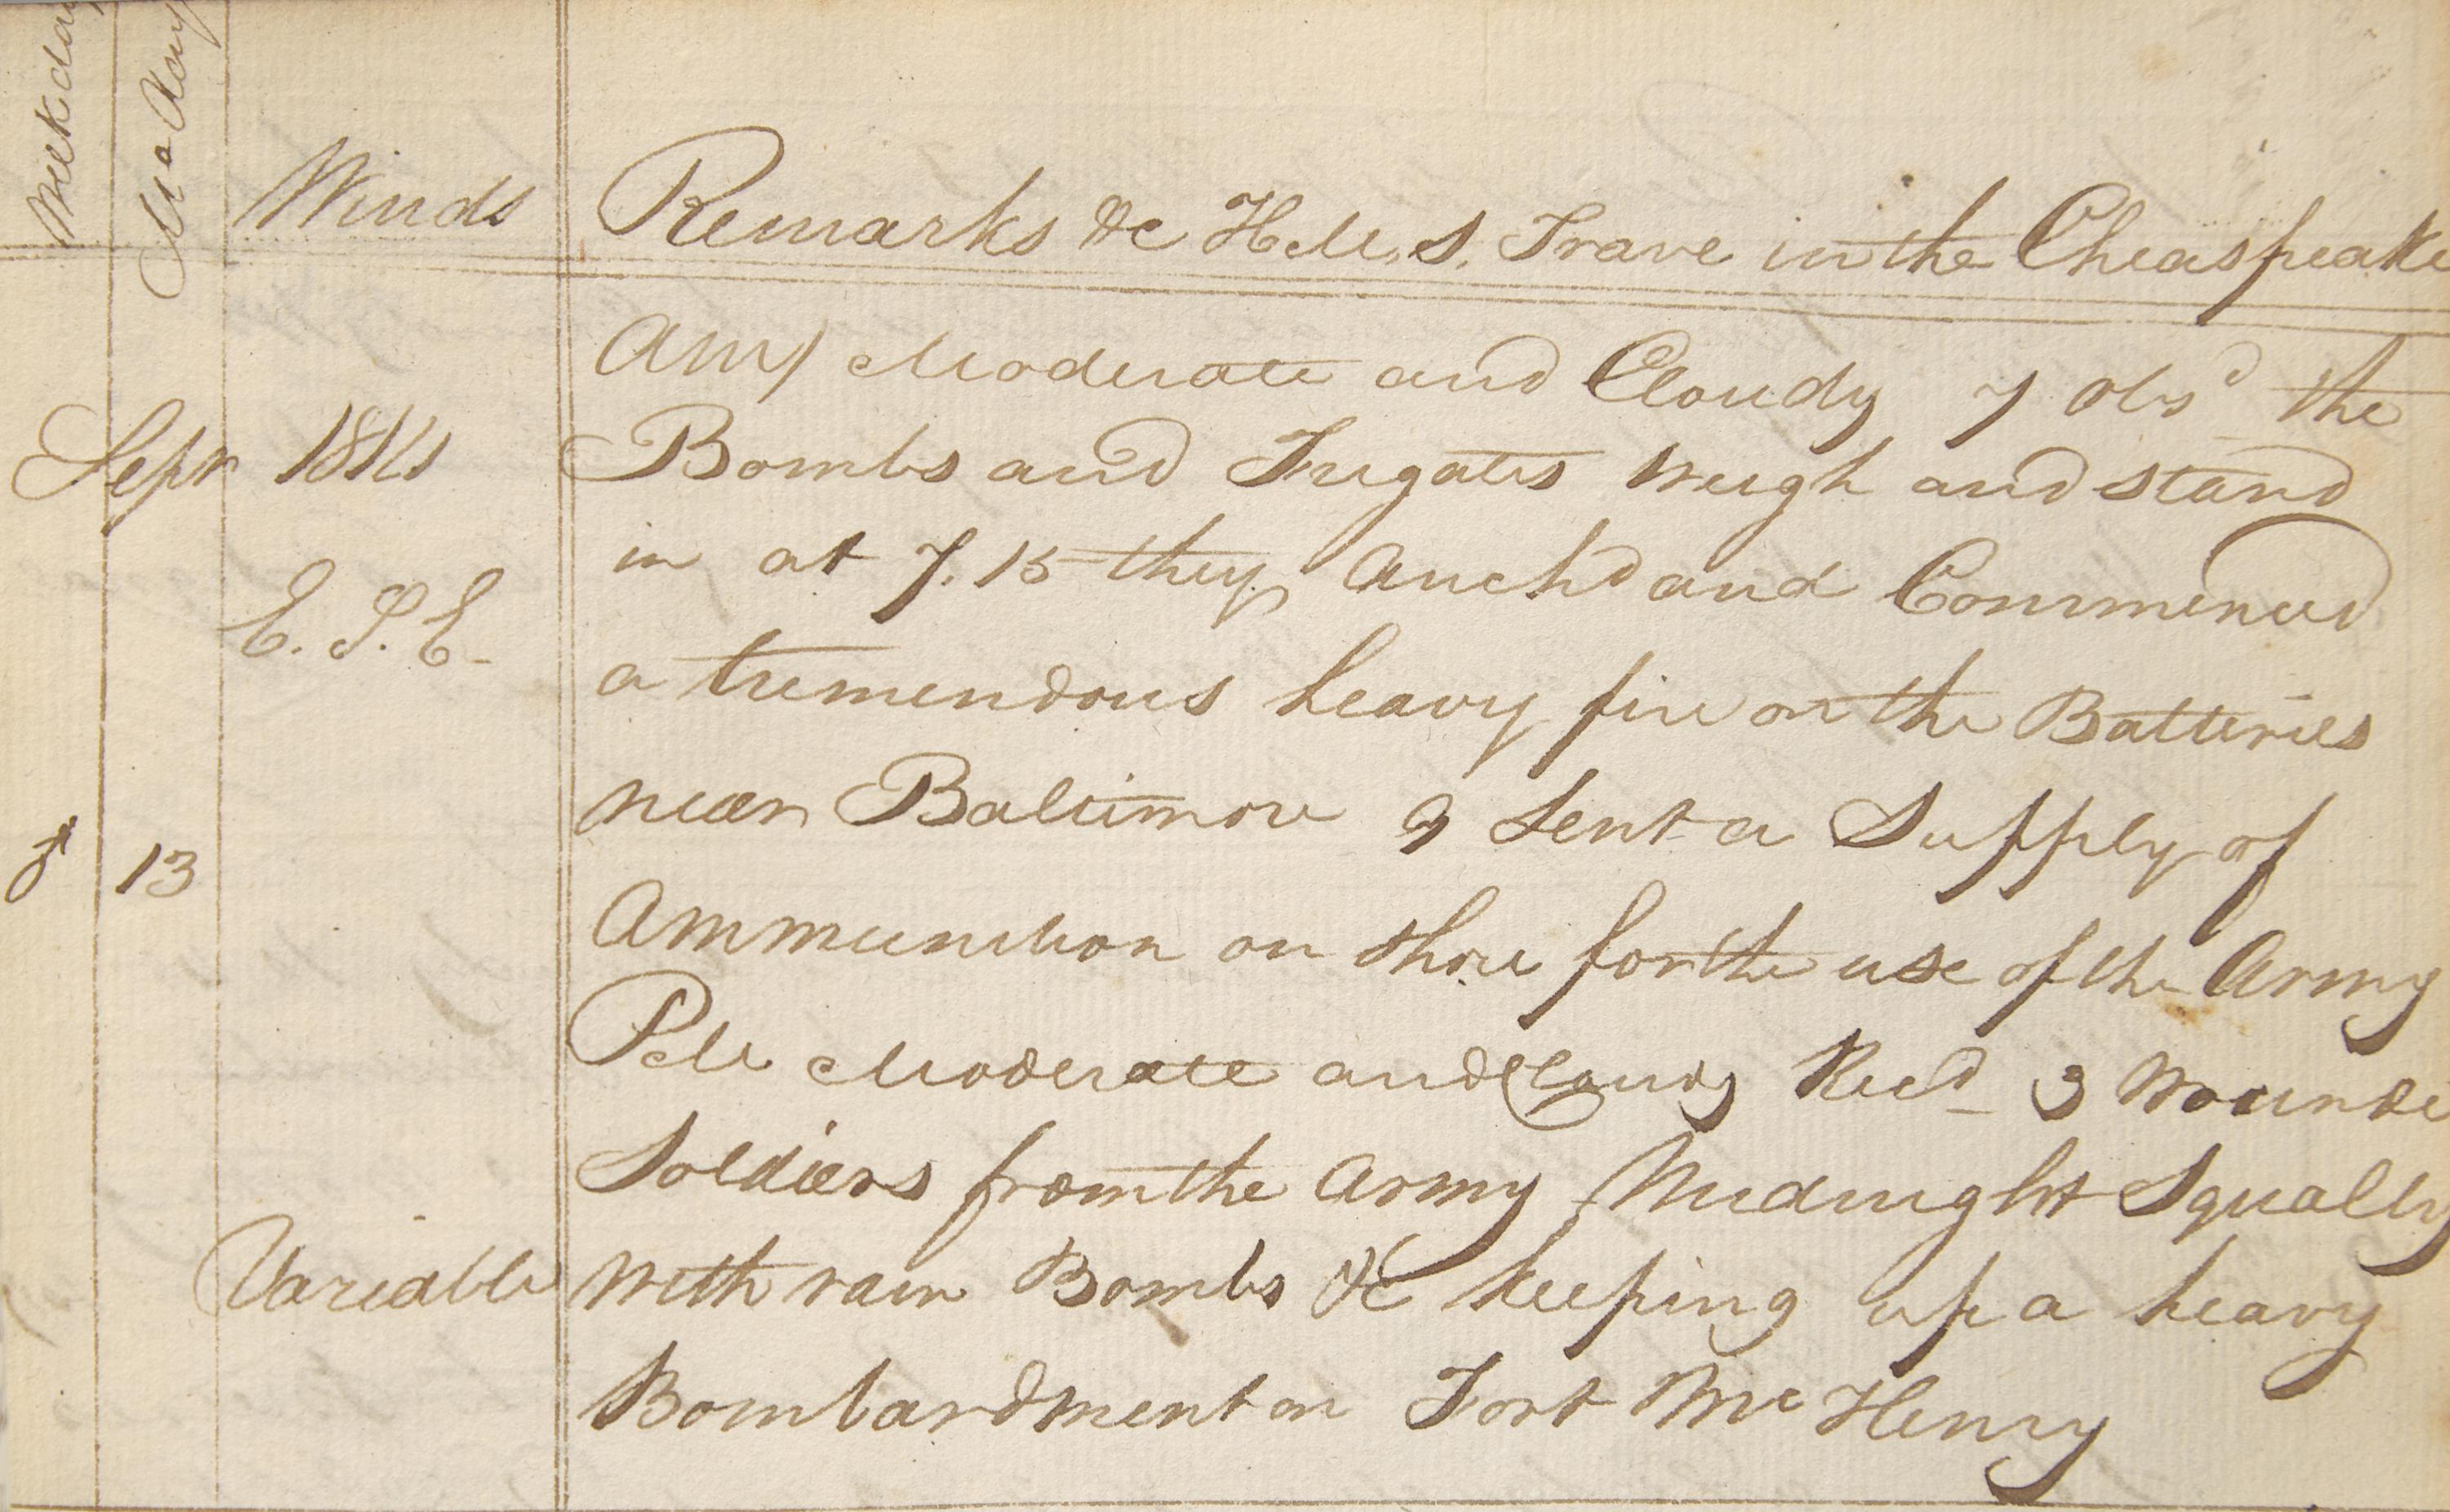 Week day
Mo Day
Winds
Remarks &c H.M.S. Trave in the Cheaspeake
AM) Moderate and Cloudy 7 Obsd the
Sepr 1814
Bombs and Frigates weigh and stand
in at 7.15 they Anchd and Commenced
E.S.E.
a tremendous heavy fire on the Batteries
near Baltimore 9 Sent a Supply of
♂ 13
Ammunition on shore for the use of the Army
PM Moderate and Cloudy Recd 3 Wounde
Soldiers from the Army Midnight Squally
Variable
with rain Bombs &c keeping up a heavy
Bombardment on Fort McHenry